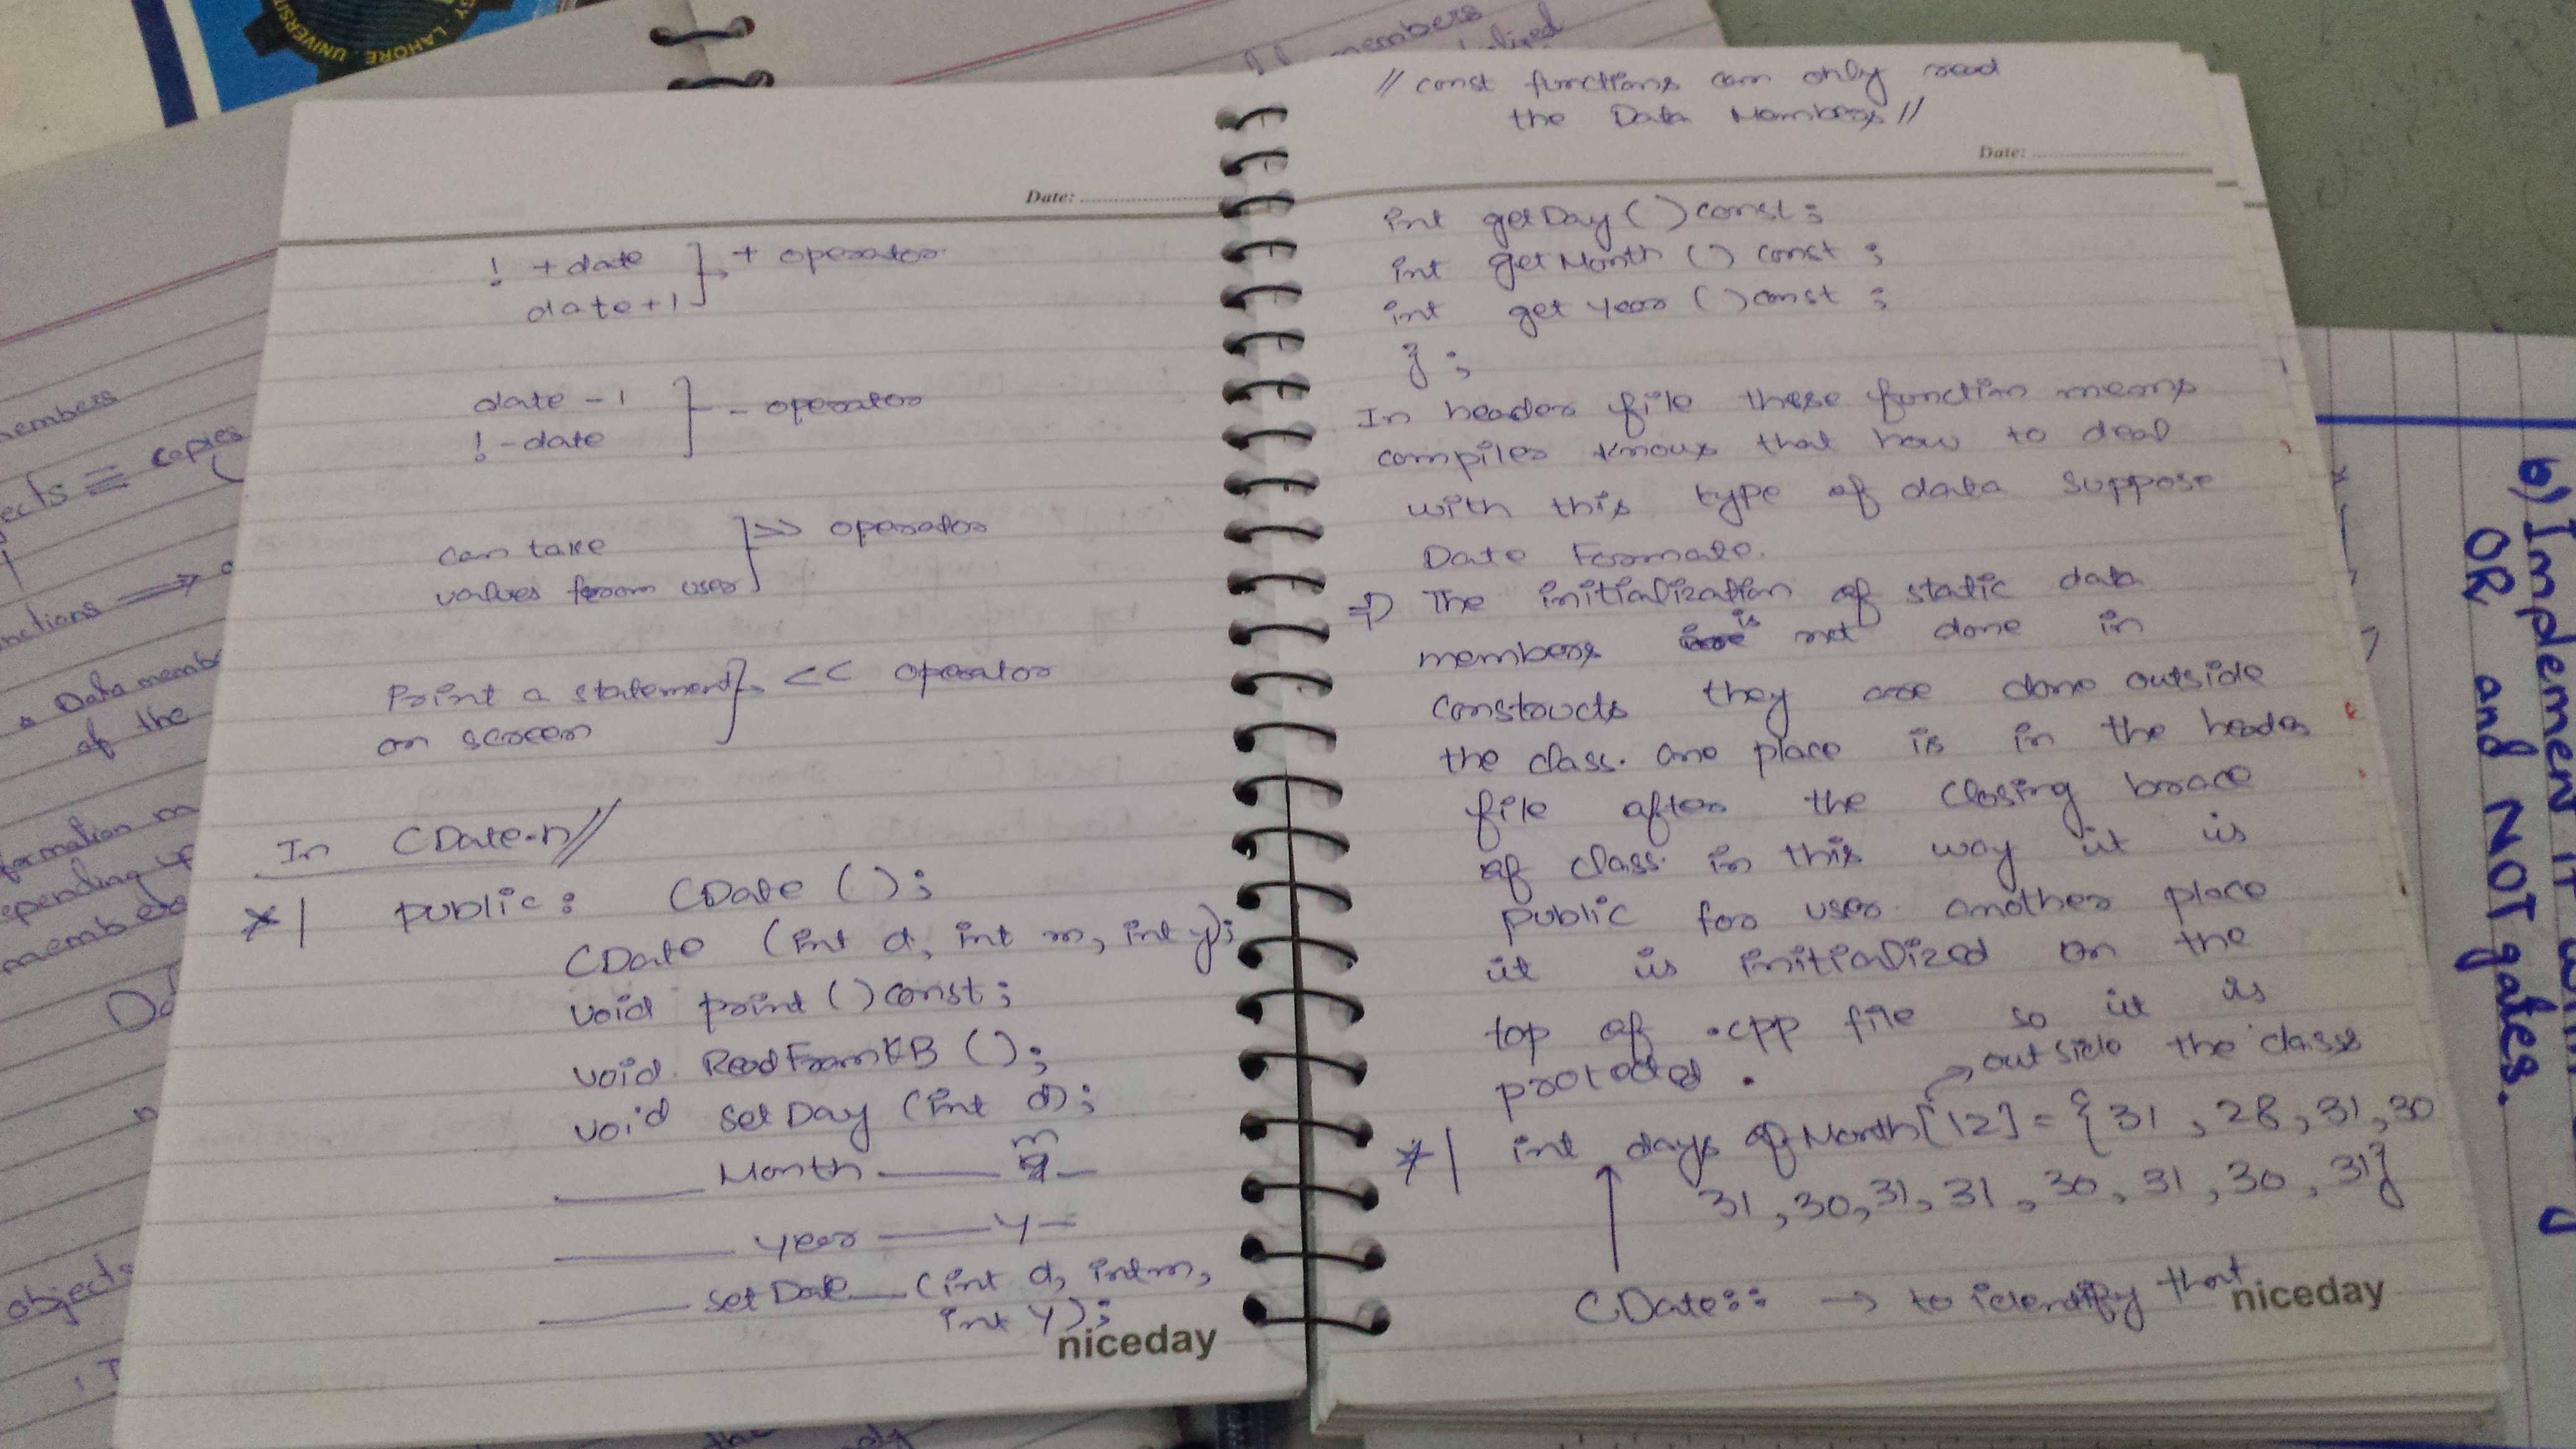 Date:
! +date ] + operator
date+1
date - 1 ] - operator
! -date
can take ] >> operator
values from user
Print a statement ] << operator
on screen
In CDate.h//
*| public: CDate ();
CDate (int d, int m, int y);
void print () const;
void ReadFromKB ();
void setDay (int d);
Month m
year y
setDate (int d, int m,
int y);
niceday
// const functions can only read
the Data Members //
Date:
int getDay () const;
int getMonth () const ;
int get year () const ;
};
In header file these function means
compiler knows that how to deal
with this type of data suppose
Date Formate.
⇒ The initialization of static data
members is not done in
constructs they are done outside
the class. one place is in the header
file after the closing brace
of class. in this way it is
public for user another place
it is initialized on the
top of .cpp file so it is
protected .
→ outside the class
*| int days of Month[12] = {31, 28, 31, 30
31, 30, 31, 31, 30, 31, 30, 31}
CDate:: → to identify that
niceday
members
ects ≡ copies
nctions ⟹
Data memb
of the
formation m
epending up
members
objects
members
b) Implemen it
OR and NOT gates.
LAHORE
UNIVERSI